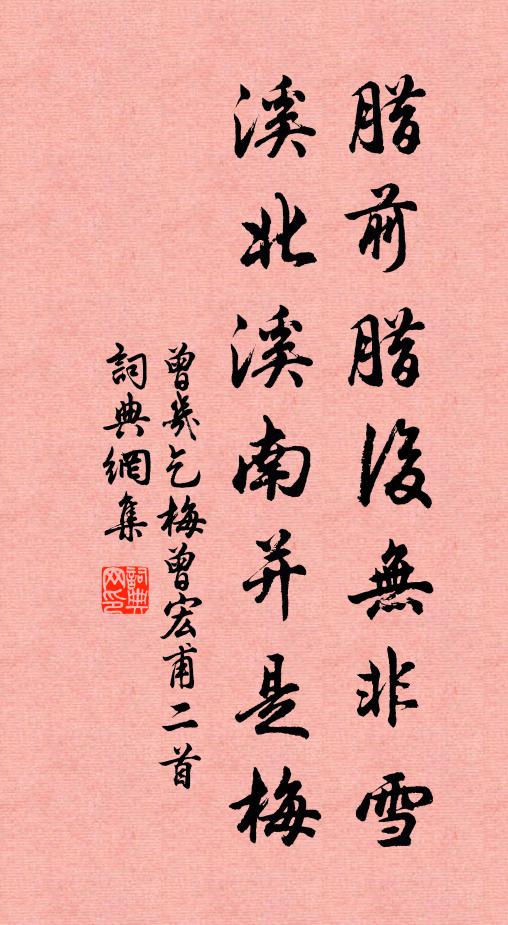 腊前腊後無非雪
溪北溪南并是梅
曾幾乞梅曾宏甫二首
詞典網集
詞典网印